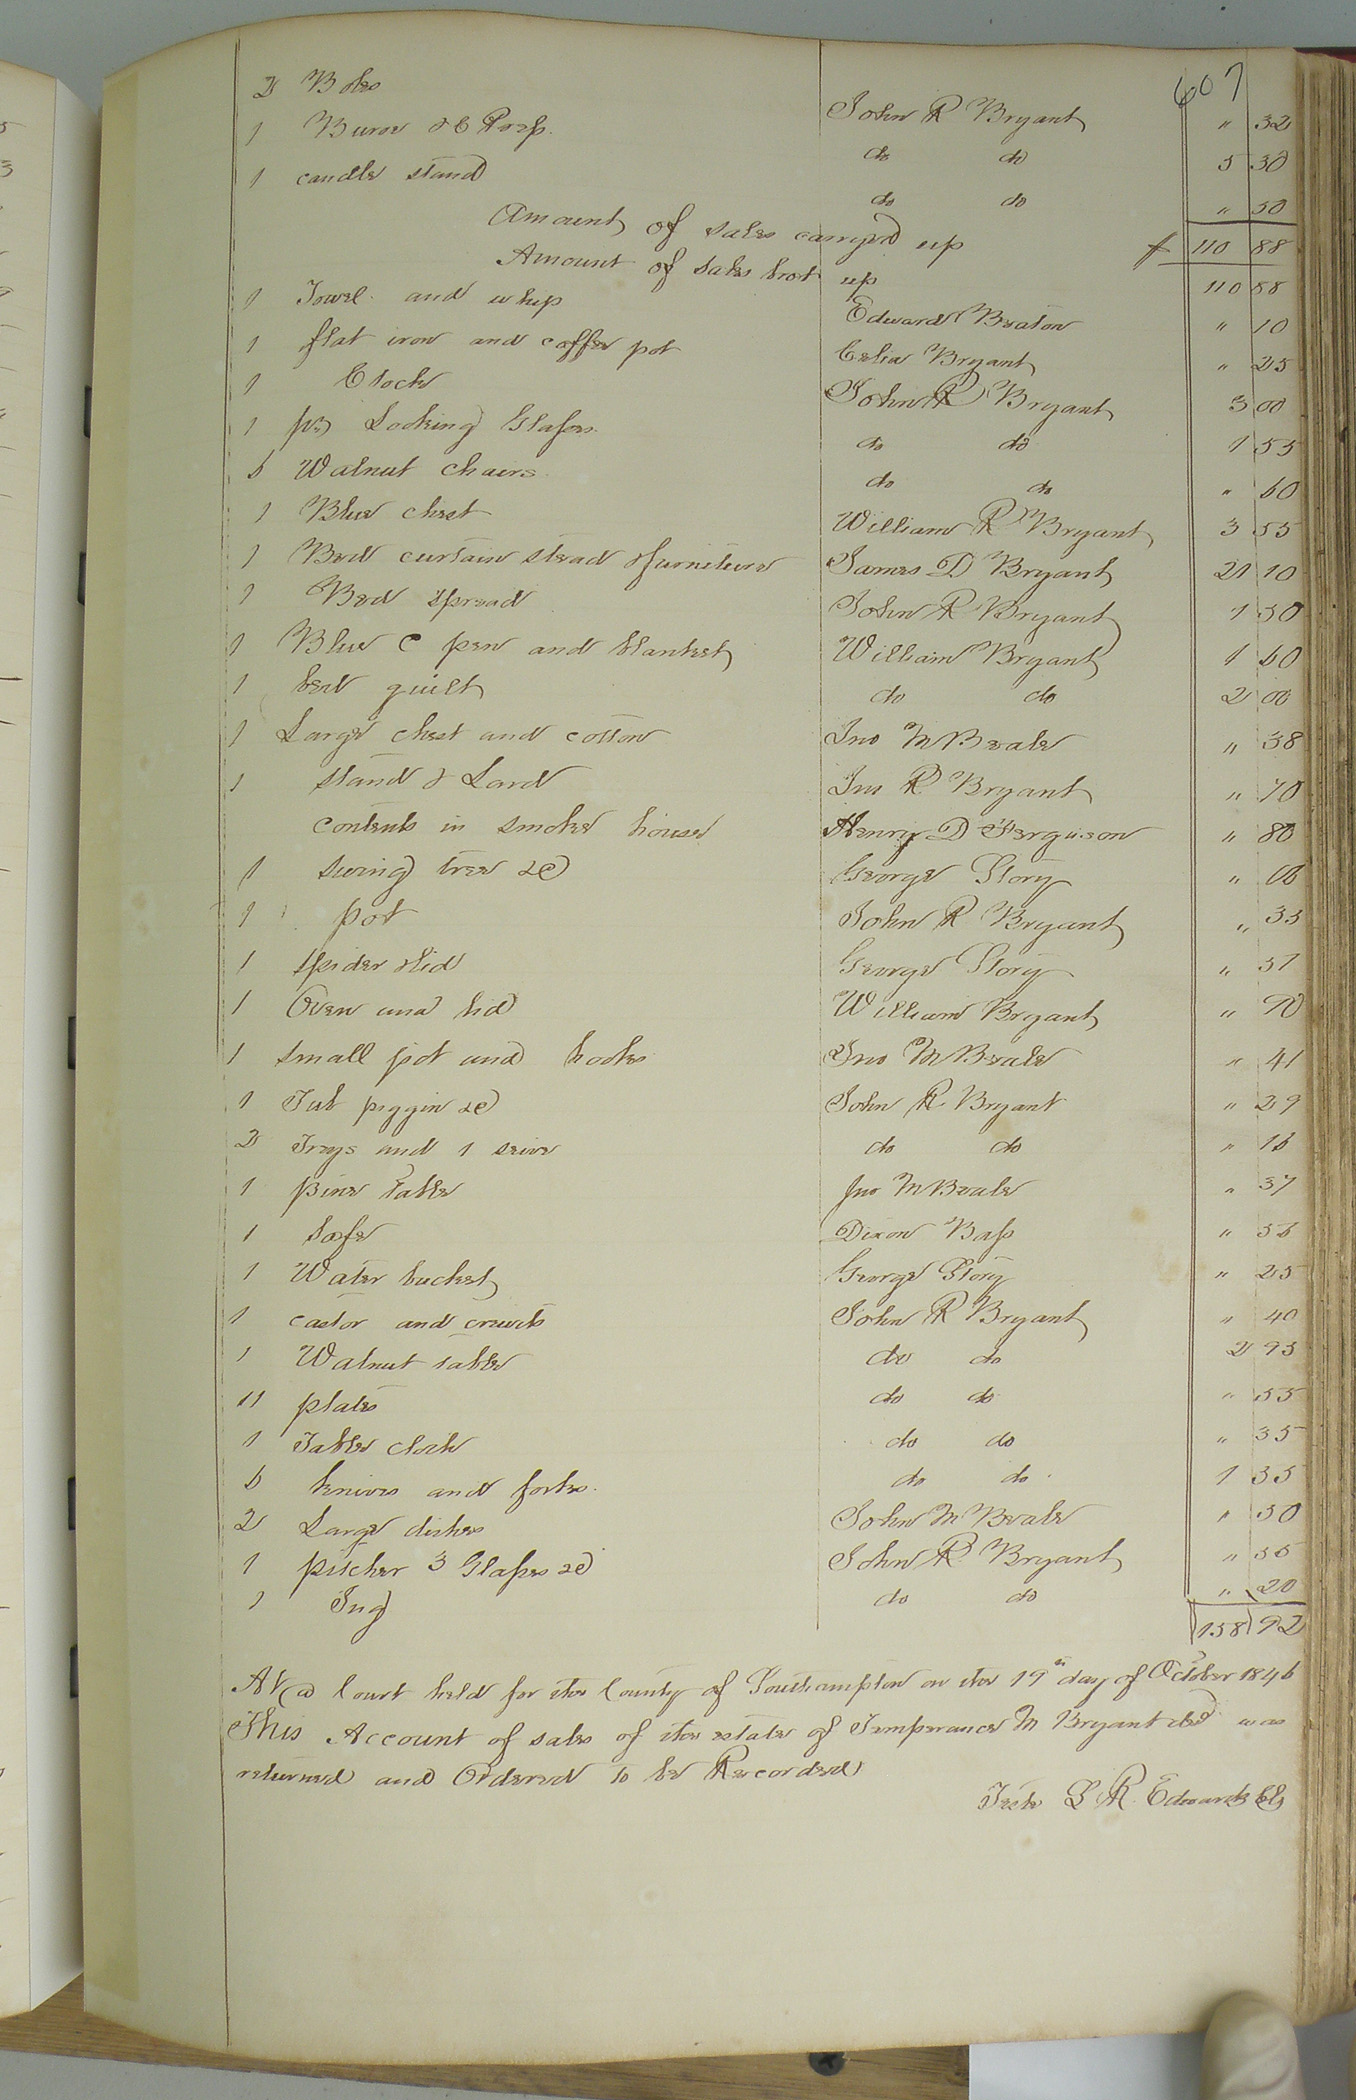 607
2 Boles John R Bryant " 32
1 Buroe & C Press do do 5 30
1 candle stand do do " 50
Amount of sales carryed up $ 110 88
Amount of sales brot up 110 88
1 Towel and whip Edward Beaton " 10
1 flat iron and coffee pot Celia Bryant " 25
1 Clock John R Bryant 3 00
1 pr Looking Glasses do do 1 55
6 Walnut chairs do do " 60
1 Blue chest William R Bryant 3 55
1 Bed curtain stead & furniture James D Bryant 21 10
1 Bed spread John R Bryant 1 50
1 Blue C pen and blanket William Bryant 1 60
1 bed quilt do do 2 00
1 Large chest and cotton Jno M Beale " 38
1 stand & Lard Jno R Bryant " 70
contents in smoke house Henry D Ferguson " 80
1 swing tree &c George Story " 06
1 pot John R Bryant " 35
1 spider & lid George Story " 37
1 Oven and lid William Bryant " 90
1 small pot and hooks Jno M Beale " 41
1 Tub piggin &c John R Bryant " 29
2 Trays and 1 seive do do " 16
1 pine Table Jno M Beale " 37
1 safe Dixon Bass " 56
1 Water bucket George Story " 25
1 castor and cruits John R Bryant " 40
1 Walnut table do do 2 95
11 plates do do " 55
1 Table cloth do do " 35
6 knives and forks do do 1 35
2 Large dishes John M Beale " 50
1 pitcher 3 Glasses &c John R Bryant " 56
1 Jug do do " 20
158 92
At a Court held for the County of Southampton on the 19th day of October 1846
This Account of sales of the estate of Temperance M Bryant decd was
returned and Ordered to be Recorded
Teste L R Edwards Clk